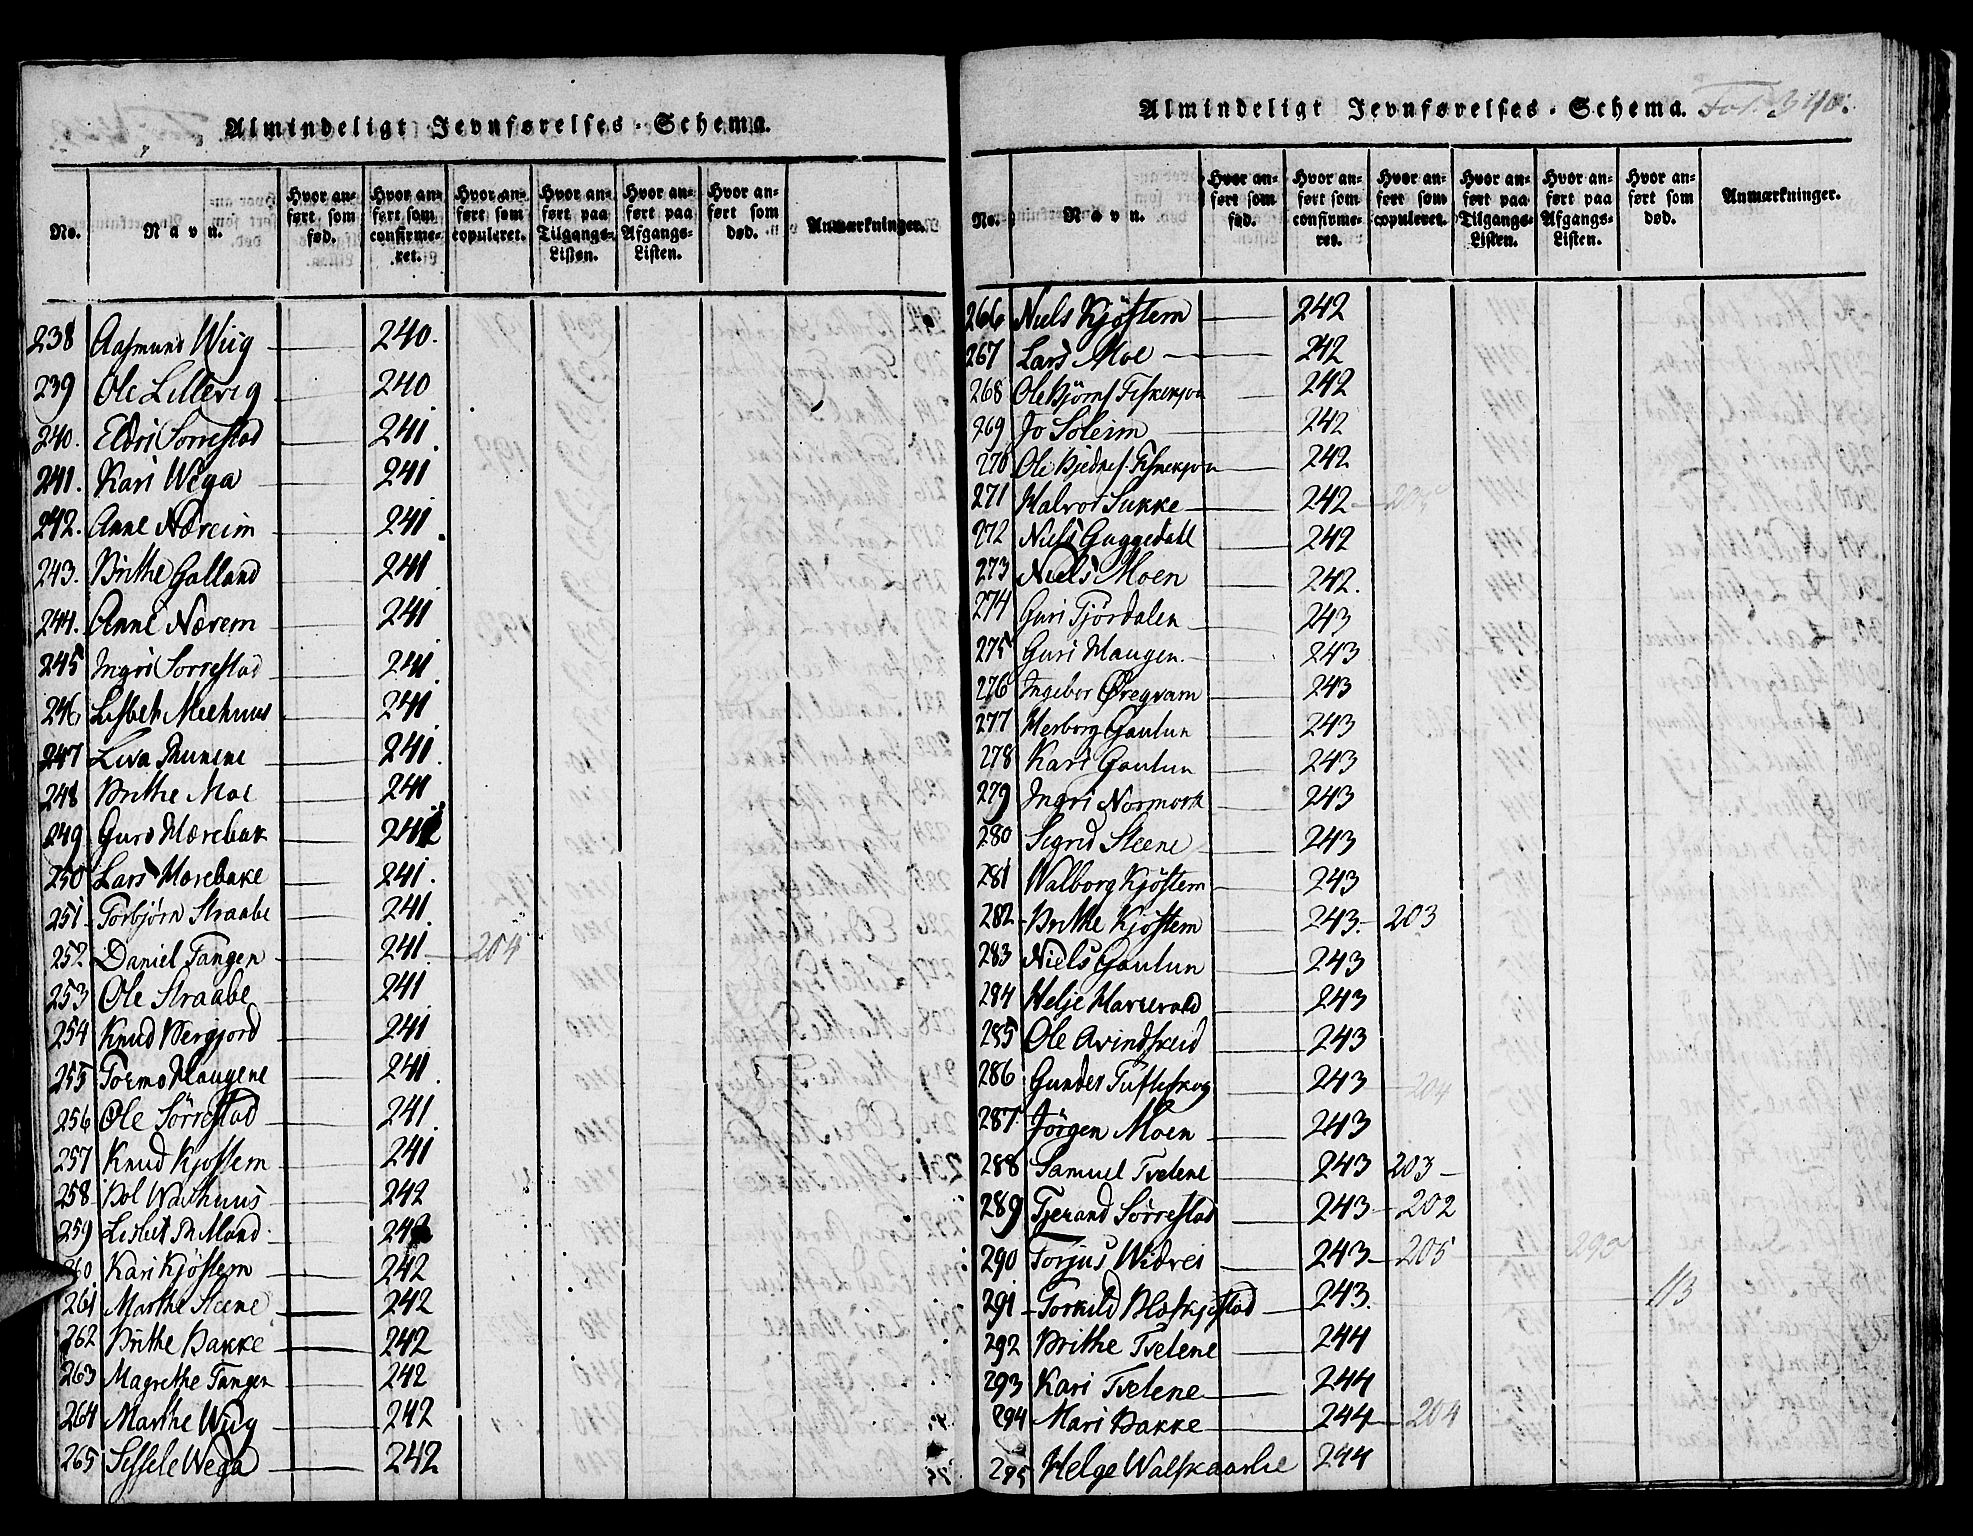 Almindeligt Jevnførelses-Schema.
No. Navn. Hvor anført som fød. Hvor anført som confirmeret. Hvor anført som copuleret. Hvor anført paa Tilgangs-Listen. Hvor anført paa Afgangs-Listen. Hvor anført som død. Anmærkninger.
238 Aasmund Wiig 240.
239 Ole Lillevig 240
240. Eldri Sørrestad 241
241. Kari Wega 241
242. Anne Næreim 241.
243. Brithe Galland 241
244. Anne Nærem 241
245 Ingri Sørrestad 241
246 Lisbet Meehuus 241
247 Liva 241.
248 Brithe Moe 241
249 Guro Mærebak
250 Lars Mærebake 241.
251 Torbjørn Straabe 241.
252 Daniel Tangen 241. 204
253 Ole Straabe 241
254 Knud Bergjord 241
255 Tormo Haugene 241.
256 Ole Sørrestad 241.
257 Knud Kjøstem 241
258 Bol Washuus 242
259 Lisbet
260 Kari Kjøstem 242
261 Marthe Steene 242
262 Brithe Bakke 242
263 Magrethe Tangen 242
264 Marthe Wiig 242
265 Sissele Wega 242
Almindeligt Jevnførelses-Schema. Fol. 340.
No. Navn. Hvor anført som fød. Hvor anført som confirmeret. Hvor anført som copuleret. Hvor anført paa Tilgangs-Listen. Hvor anført paa Afgangs-Listen. Hvor anført som død. Anmærkninger.
266 Niels Kjøstem 242
267 Lars Moe 242
268 Ole Bjørns Fiskekjøn 242
269 Jo Soleim 242
270 Ole 242
271 Halvor Sukke 242
272 Niels Guggedall 242
273 Niels Moen 242.
274 Guri Tjørdalen 243
275 Guri Haugen 243
276 Ingebor Øregvam 243
277 Herborg Gautun 243
278 Kari Gautun 243
279 Ingri Normork 243
280 Sigrid Steene 243
281 Walborg Kjøstem 243
282 Brithe Kjøstem 243. 203
283 Niels Gautun 243
284 Helje 243
285 Ole Avindskeid 243
286 Gunder Tufteskog 243 204
287. Jørgen Moen 243
288 Samuel Tvetene 243 203
289 Tjerand Sørrestad 243 202
290 Torjus Widvei 243 205
291 Torkild 243. 113
292 Brithe Tvetene 244
293 Kari Tvetene 244
294 Mari Bakke 244 204
295 Helge Walskaarlie 244